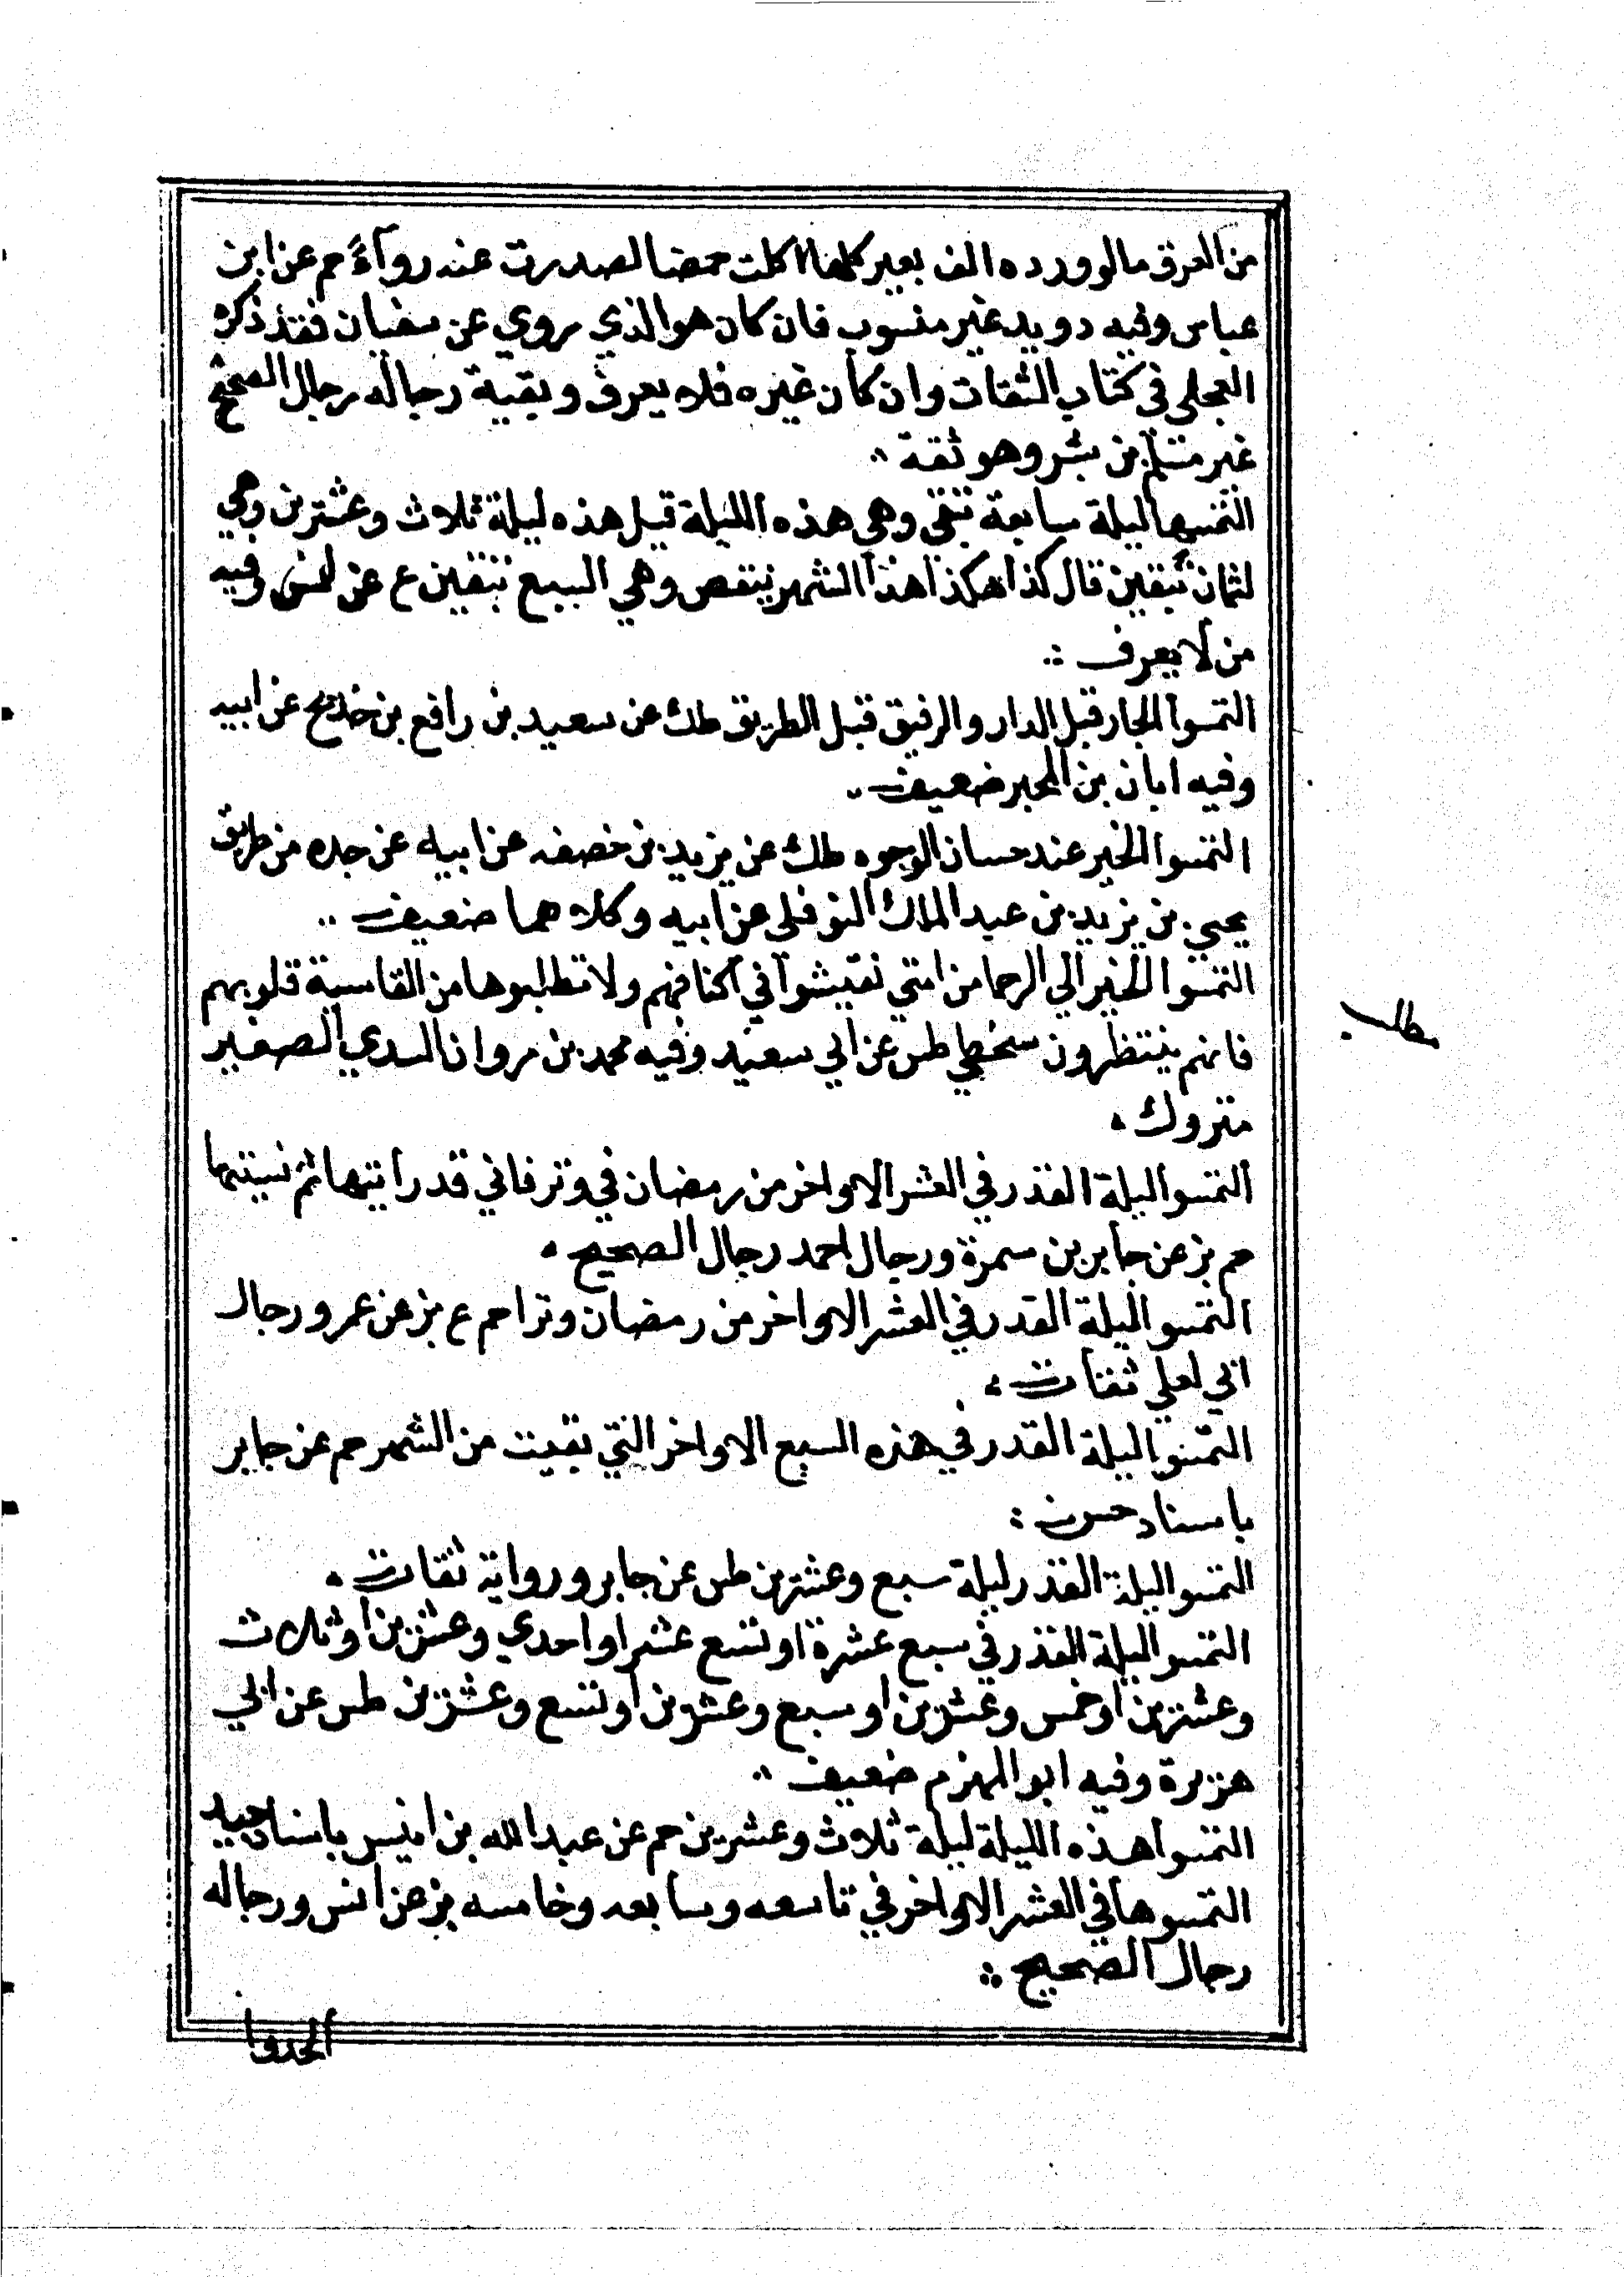 من العرق مالو ورده الف بعير كلها اكلت حمضا لصدرت عنه رواءً حم عن ابن
عباس وفيه دويد غير منسوب فان كان هو الذي يروي عن سفيان فقد ذكره
العجلي في كتاب الثقات وان كان غيره فلا يعرف وبقية رجاله رجال الصحيح
غير مسلم بن بشر وهو ثقة
التمسها ليلة سابعة تبقى وهي هذه الليلة قيل هذه ليلة ثلاث وعشرين وهي
لثمان تبقين قال كذا هكذا هذا الشهر ينقص وهي السبع تبقين ع عن انس وفيه
من لا يعرف
التمسوا الجار قبل الدار والرفيق قبل الطريق طك عن سعيد بن رافع بن خديج عن ابيه
وفيه ابان بن المحبر ضعيف
التمسوا الخير عند حسان الوجوه طك عن يزيد بن خصفه عن ابيه عن جده من طريق
يحيي بن يزيد بن عبد الملك النوفلي عن ابيه وكلاهما ضعيف
التمسوا الخير الي الرحما من امتي تعيشوا في اكنافهم ولا تطلبوها من القاسية قلوبهم
مطلب
فانهم ينتظرون سخطي طس عن ابي سعيد وفيه محمد بن مروان السدي الصغير
متروك
التمسوا ليلة القدر في العشر الاواخر من رمضان في وتر فاني قد رايتها ثم نسيتها
حم بز عن جابر بن سمرة ورجال احمد رجال الصحيح
التمسوا ليلة القدر في العشر الاواخر من رمضان وترا حم ع بز عن عمر ورجال
ابي يعلي ثقات
التمسوا ليلة القدر في هذه السبع الاواخر التي بقيت من الشهر حم عن جابر
باسناد حسن
التمسوا ليلة القدر ليلة سبع وعشرين طس عن جابر ورواية ثقات
التمسوا ليلة القدر في سبع عشرة او تسع عشر او احدي وعشرين او ثلاث
وعشرين او خمس وعشرين او سبع وعشرين او تسع وعشرين طس عن ابي
هريرة وفيه ابو المهزم ضعيف
التمسوا هذه الليلة ليلة ثلاث وعشرين حم عن عبد الله بن انيس باسناد جيد
التمسوها في العشر الاواخر في تاسعه وسابعه وخامسه بز عن انس ورجاله
رجال الصحيح
الحدوا